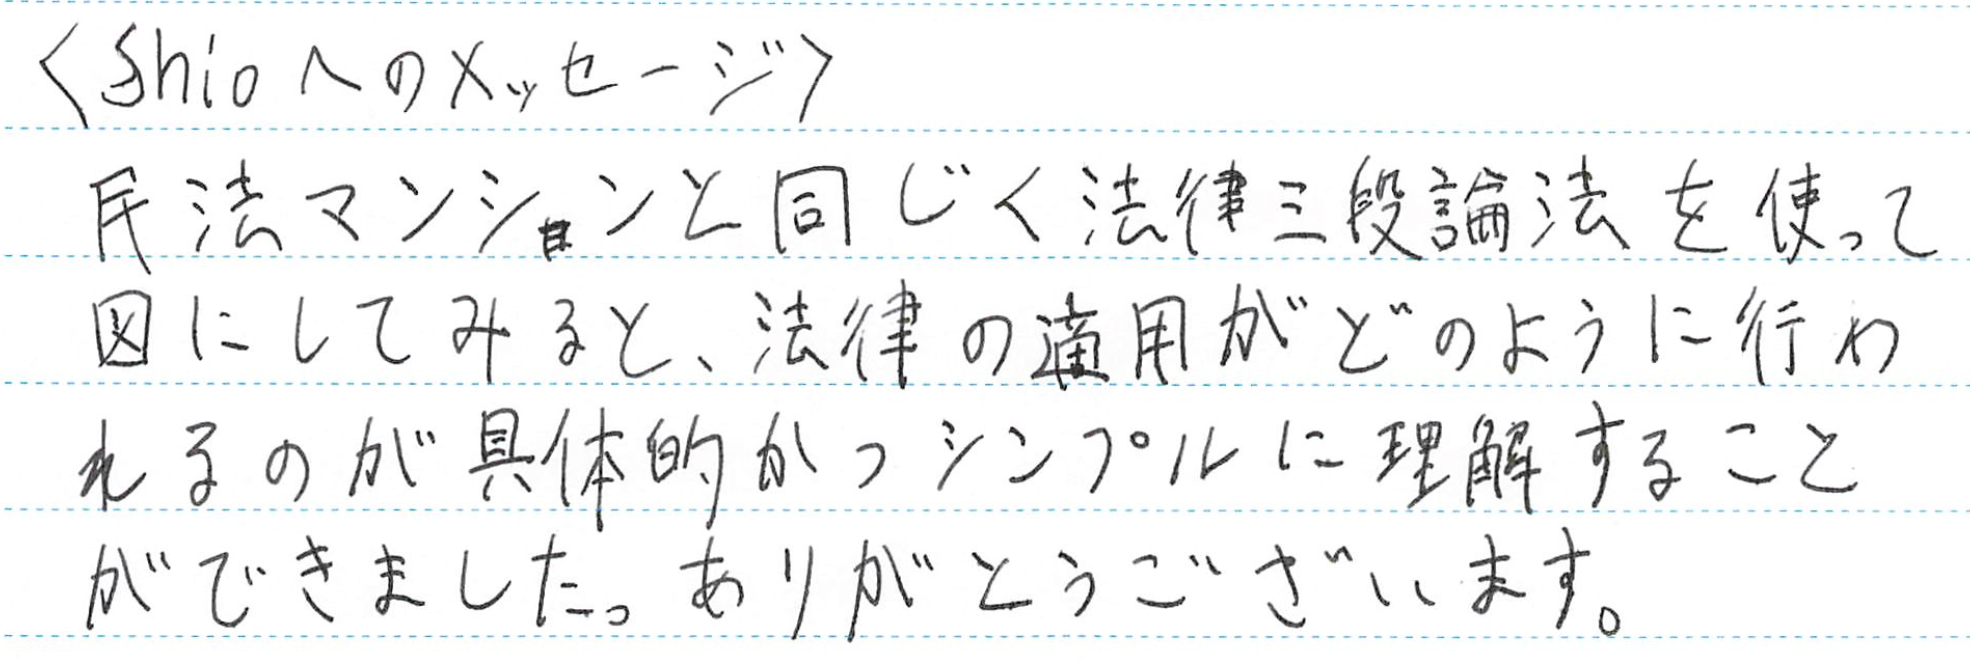 〈Shioへのメッセージ〉
民法マンションと同じく法律三段論法を使って
図にしてみると、法律の適用がどのように行わ
れるのが具体的かつシンプルに理解すること
ができました。ありがとうございます。